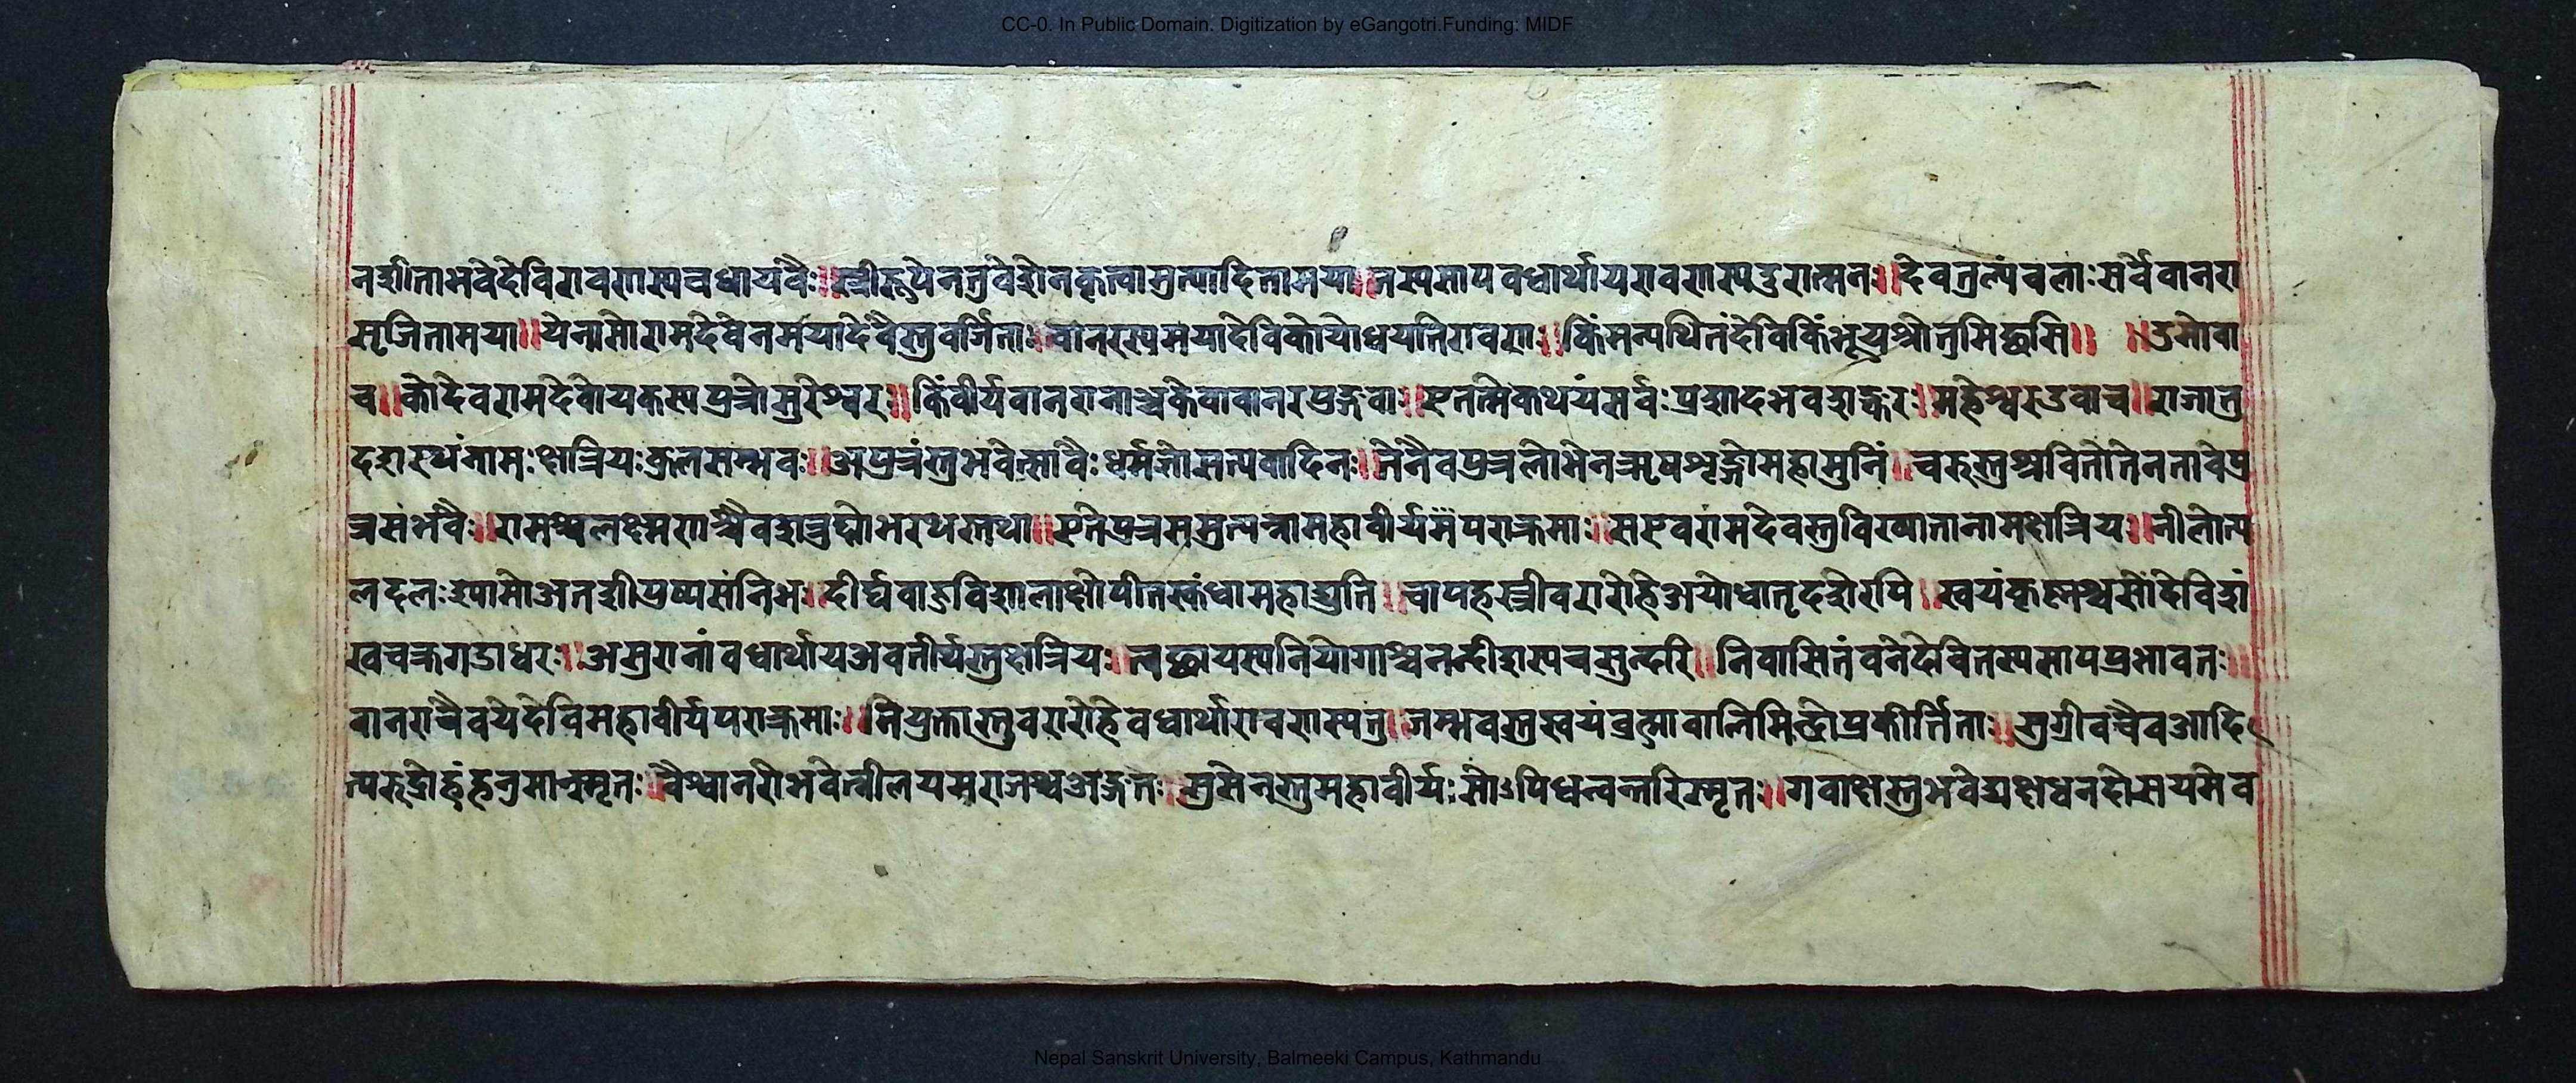 CC-0. In Public Domain. Digitization by eGangotri.Funding: MIDF
नशीताभवेदेविरावणस्यवधायवैः॥स्त्रीरूपेनतुवेशेनकृत्वामुत्पादितामया॥तस्यसापवधार्थायरावणस्यदुरात्मनः॥देवतुल्यंबलाःसर्वेवानरा
सृजितामया॥येनासोरामदेवेनमयादेवैस्तुवर्जिताः॥वानरस्यमयादेविकोयोधयतिरावणः॥किंमन्यथितंदेविकिंभूयश्रोतुमिच्छसि॥ ॥उमोवा
च॥कोदेवरामदेवोयकस्यपुत्रोसुरेश्वरः॥किंवीर्यवानरानाञ्चकेवावानरपुङ्गवाः॥एतत्मेकथयंसर्वःप्रशादभवशङ्करः॥महेश्वरउवाच॥राजातु
दशरथंनामःक्षत्रियःकुलसम्भवः॥अपुत्रंस्तुभवेत्सावैःधर्मज्ञोसत्यवादिनः॥तेनैवपुत्रलोभेनऋषशृङ्गोमहामुनिं॥चरुस्तुश्रवितेतेनतावेपु
त्रसंभवैः॥रामश्चलक्ष्मणश्चैवशत्रुघ्नोभरथस्तथा॥एतेपुत्रसमुत्पन्नामहावीर्यमपराक्रमाः॥सएवरामदेवस्तुविख्यातानामक्षेत्रियः॥नीलोत्प
लदलःश्यामोअतशीपुष्पसंनिभ॥दीर्घबाहुविशालाक्षोपीतस्कंधामहाद्युति॥चापहस्त्रीवरारोहेअयोधातृदशेरपि॥स्वयंकृष्णश्चसोदेविशं
खचक्रगदाधरः॥असुरानांवधार्थायअवतीर्यस्तुक्षेत्रियः॥लच्छायस्यनियोगाश्चनन्दीशस्यचसुन्दरि॥निवासितंवनेदेवितस्यसापप्रभावतः॥
वानराचैवयेदेविमहावीर्यपराक्रमाः॥नियुक्तास्तुवरारोहेवधार्थारावणस्यतु॥जम्भवस्तुस्वयंब्रह्मावालिमिन्द्रोप्रकीर्त्तिताः॥सुग्रीवचैवआदि
त्यरुद्रोहंहनुमान्स्मृतः॥वैश्वानरोभवेन्नीलयमराजश्चअङ्गतः॥सुसेनस्तुमहावीर्यःसोऽपिधन्वन्तरिस्मृतः॥गवाक्षस्तुभवेद्यक्षधनदोसयमेव
Nepal Sanskrit University, Balmeeki Campus, Kathmandu